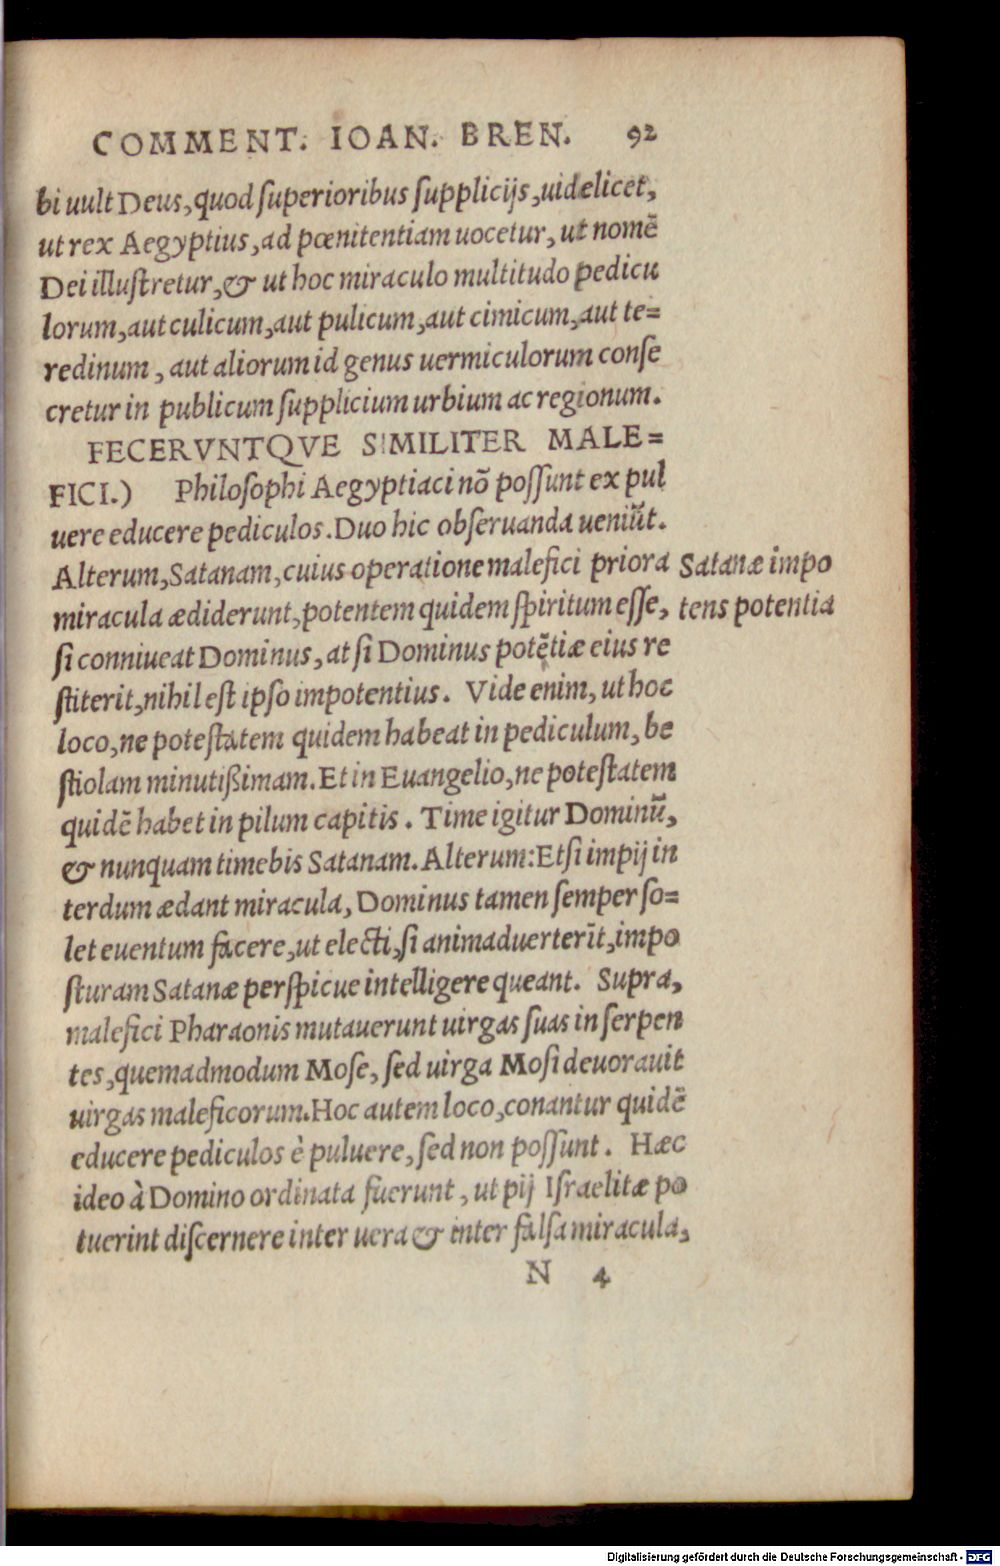 COMMENT. IOAN. BREN. 92
bi uult Deus, quod ſuperioribus ſupplicijs, uidelicet,
ut rex Aegyptius, ad pœnitentiam uocetur, ut nomē
Dei illuſtretur, & ut hoc miraculo multitudo pedicu
lorum, aut culicum, aut pulicum, aut cimicum, aut te=
redinum, aut aliorum id genus uermiculorum conſe
cretur in publicum ſupplicium urbium ac regionum.
FECERVNTQVE SIMILITER MALE=
FICI.) Philoſophi Aegyptiaci nō poſſunt ex pul
uere educere pediculos. Duo hic obſeruanda ueniūt.
Alterum, Satanam, cuius operatione malefici priora
miracula ædiderunt, potentem quidem ſpiritum eſſe,
Satanæ impo
tens potentia
ſi conniueat Dominus, at ſi Dominus potētiæ eius re
ſtiterit, nihil eſt ipſo impotentius. Vide enim, ut hoc
loco, ne poteſtatem quidem habeat in pediculum, be
ſtiolam minutißimam. Et in Euangelio, ne poteſtatem
quidē habet in pilum capitis. Time igitur Dominū,
& nunquam timebis Satanam. Alterum: Etſi impij in
terdum ædant miracula, Dominus tamen ſemper ſo=
let euentum facere, ut electi, ſi animaduerterīt, impo
ſturam Satanæ perſpicue intelligere queant. Supra,
malefici Pharaonis mutauerunt uirgas ſuas in ſerpen
tes, quemadmodum Moſe, ſed uirga Moſi deuorauit
uirgas maleficorum. Hoc autem loco, conantur quidē
educere pediculos è puluere, ſed non poſſunt. Hæc
ideo à Domino ordinata fuerunt, ut pij Iſraelitæ po
tuerint diſcernere inter uera & inter falſa miracula,
N 4
Digitalisierung gefördert durch die Deutsche Forschungsgemeinschaft - DFG